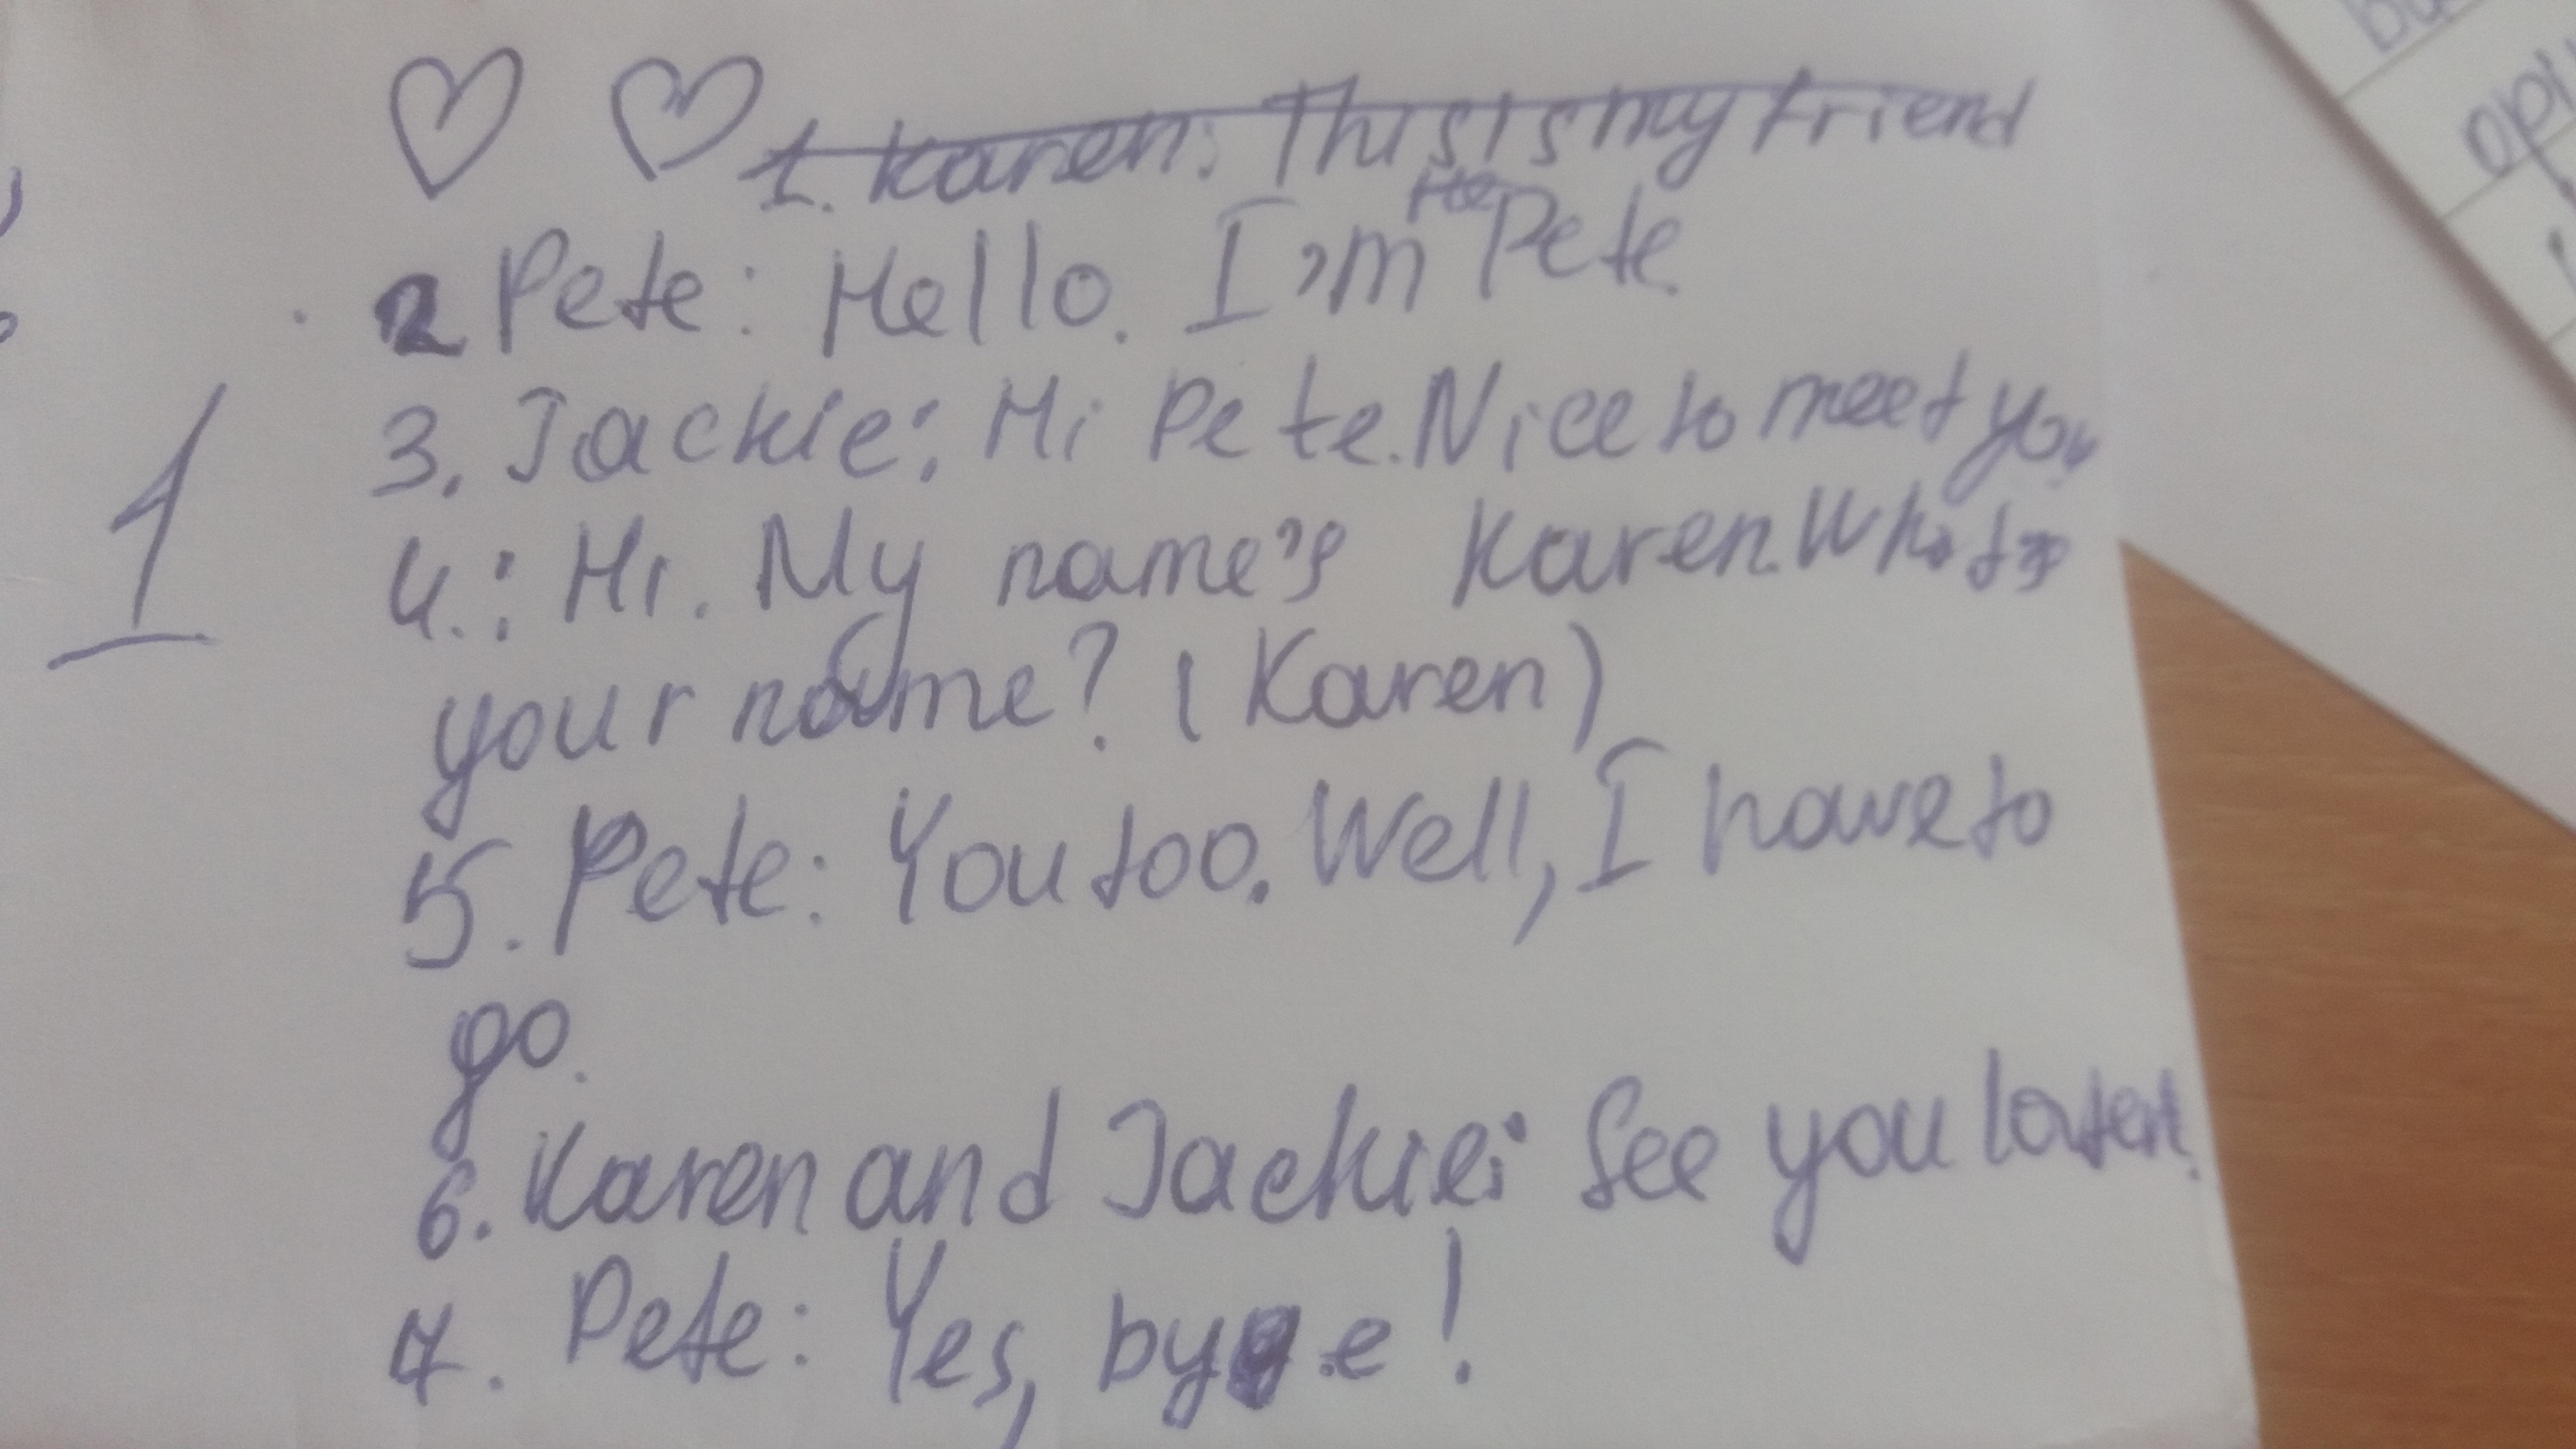 1. Karen: This is my friend
2 Pete: Hello. I'm Pete.
3. Jackie: Hi Pete. Nice to meet you.
4.: Hi. My name's Karen. What's
your name? (Karen)
5. Pete: You too. Well, I have to
go.
6. Karen and Jackie: See you later.
7. Pete: Yes, bye!
1